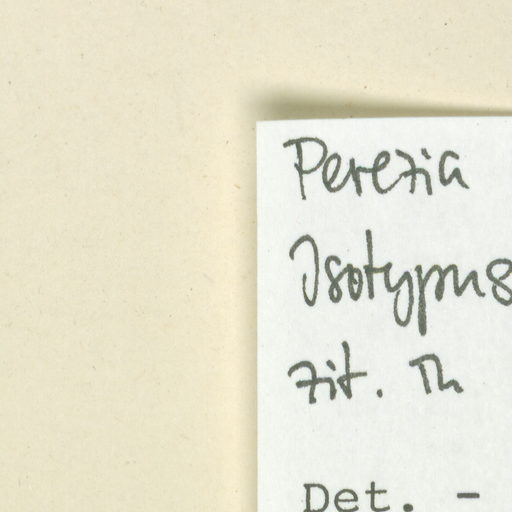 Perezia
Isotypus
zit. Th
Det. -